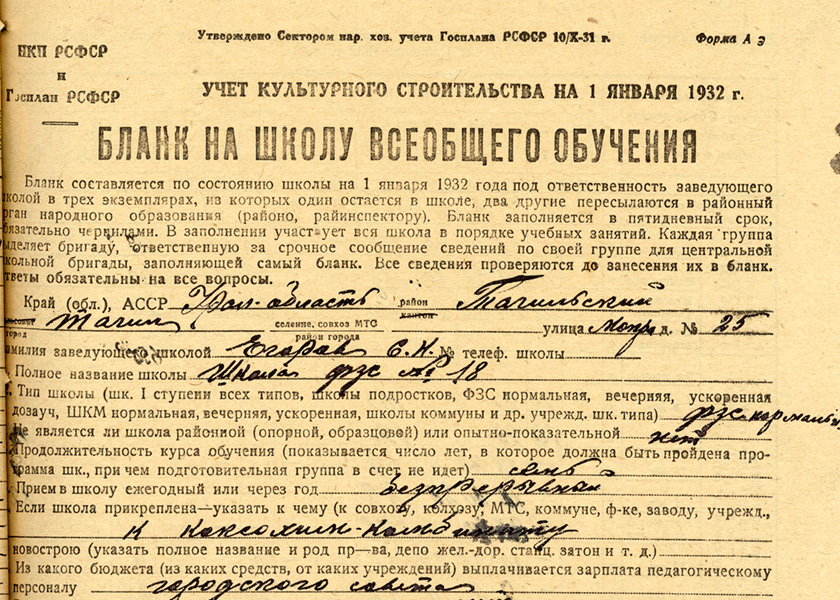 Утверждено Сектором нар. хоз. учета Госплана РСФСР 10/X-31 г. Форма А э
НКП РСФСР
и
Госплан РСФСР
УЧЕТ КУЛЬТУРНОГО СТРОИТЕЛЬСТВА НА 1 ЯНВАРЯ 1932 г.
БЛАНК НА ШКОЛУ ВСЕОБЩЕГО ОБУЧЕНИЯ
Бланк составляется по состоянию школы на 1 января 1932 года под ответственность заведующего
колой в трех экземплярах, из которых один остается в школе, два другие пересылаются в районный
рган народного образования (районо, райинспектору). Бланк заполняется в пятидневный срок,
бязательно чернилами. В заполнении участвует вся школа в порядке учебных занятий. Каждая группа
ыделяет бригаду, ответственную за срочное сообщение сведений по своей группе для центральной
кольной бригады, заполняющей самый бланк. Все сведения проверяются до занесения их в бланк.
тветы обязательны на все вопросы.
Край (обл.), АССР Урал-область район Тагильский
кантон
Тагил селение, совхоз МТС улица Мопра д. № 25
город район города
амилия заведующего школой Егоров С. Н. № телеф. школы
Полное название школы Школа фзс № 18
Тип школы (шк. I ступени всех типов, школы подростков, ФЗС нормальная, вечерняя, ускоренная
дозауч, ШКМ нормальная, вечерняя, ускоренная, школы коммуны и др. учрежд. шк. типа) фзс нормальн
Не является ли школа районной (опорной, образцовой) или опытно-показательной нет
Продолжительность курса обучения (показывается число лет, в которое должна быть пройдена про-
грамма шк., при чем подготовительная группа в счет не идет) семь
Прием в школу ежегодный или через год безпрерывный
Если школа прикреплена—указать к чему (к совхозу, колхозу, МТС, коммуне, ф-ке, заводу, учрежд.,
к коксохим-комбинату
новострою (указать полное название и род пр—ва, депо жел.-дор. станц. затон и т. д.)
Из какого бюджета (из каких средств, от каких учреждений) выплачивается зарплата педагогическому
персоналу городского совета